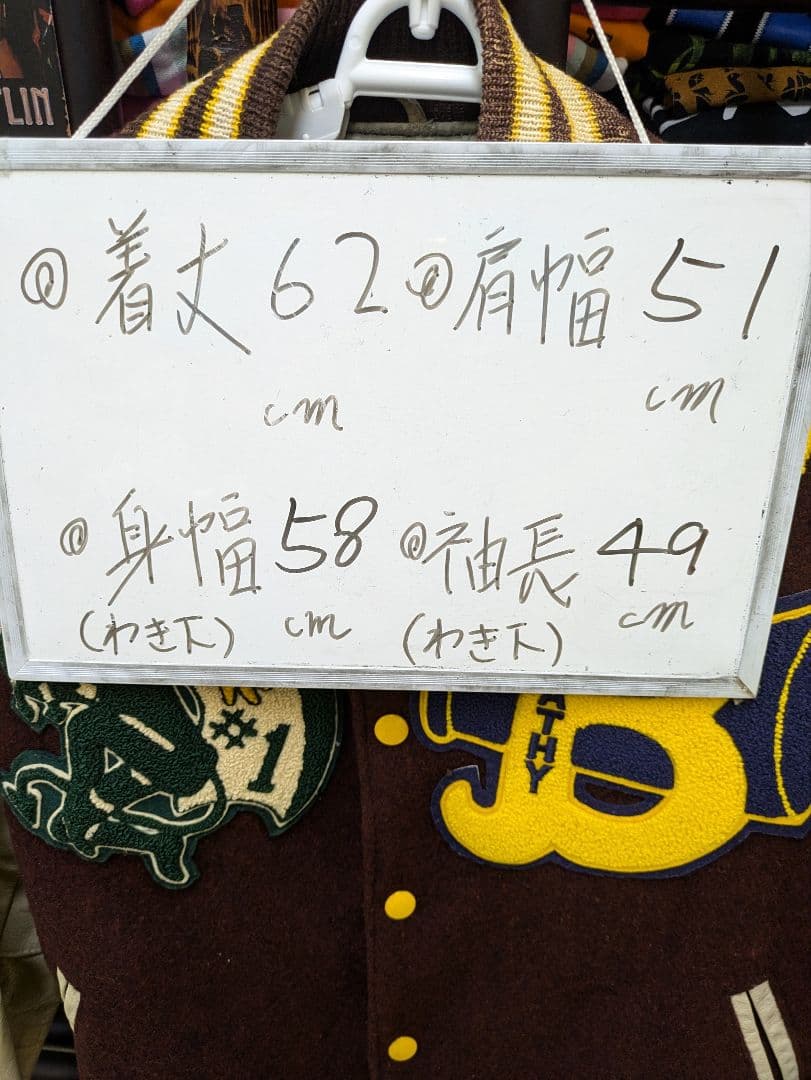 LIN
◎着丈 62 ◎肩幅 51
cm cm
◎身幅 58 ◎袖長 49
(わき下) cm (わき下) cm
#1
ATHY
B